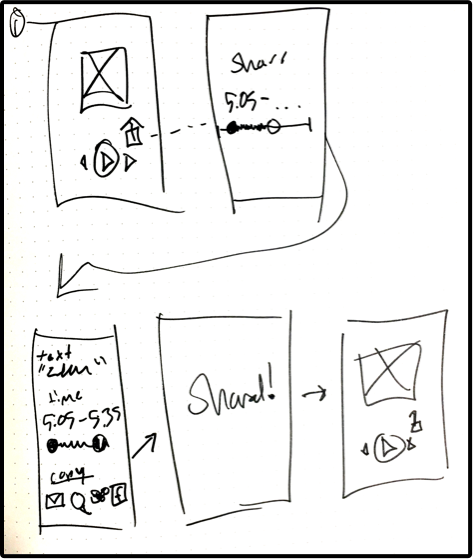 Share
5:05 - ...
text
time
5:05 - 5:35
copy
Shared!